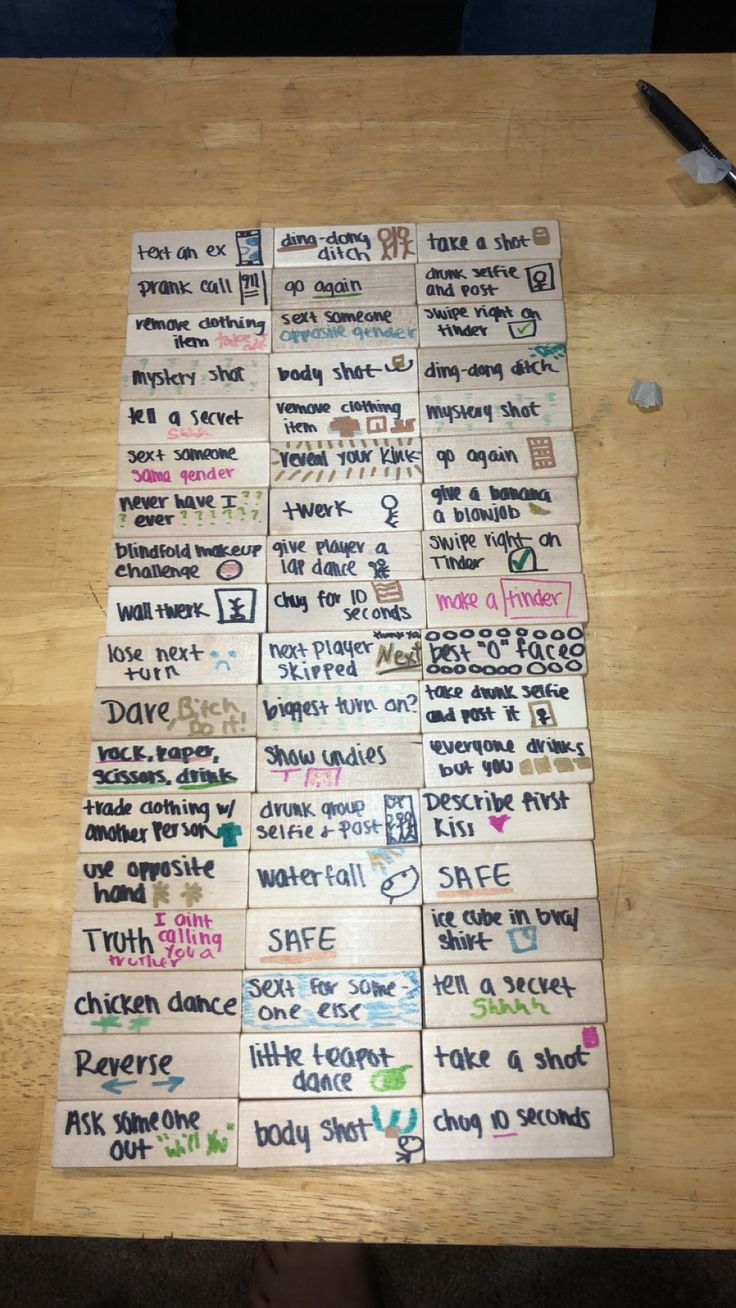 text an ex
ding-dong
ditch
take a shot
prank call
911
go again
drunk selfie
and post
remove clothing
item take off
sext someone
opposite gender
swipe right on
tinder
mystery shot
body shot
ding-dong ditch
tell a secret
Shhh
remove clothing
item
mystery shot
sext someone
same gender
reveal your kink
go again
never have I ? ?
? ever ? ? ? ? ? ?
twerk
give a banana
a blowjob
blindfold makeup
challenge
give player a
lap dance
swipe right on
Tinder
wall twerk
chug for 10
seconds
make a tinder
lose next
turn
next player
skipped
Next
best "O" face
Dare Bitch
Do it!
biggest turn on?
take drunk selfie
and post it
rock, paper,
scissors, drink
show undies
everyone drinks
but you
trade clothing w/
another person
drunk group
selfie + post
Describe first
kiss
use opposite
hand
waterfall
SAFE
Truth I aint
calling
you a
truther
SAFE
ice cube in bra/
shirt
chicken dance
sext for some-
one else
tell a secret
Shhhh
Reverse
little teapot
dance
take a shot
ASK someone
out "will you"
body shot
chug 10 seconds